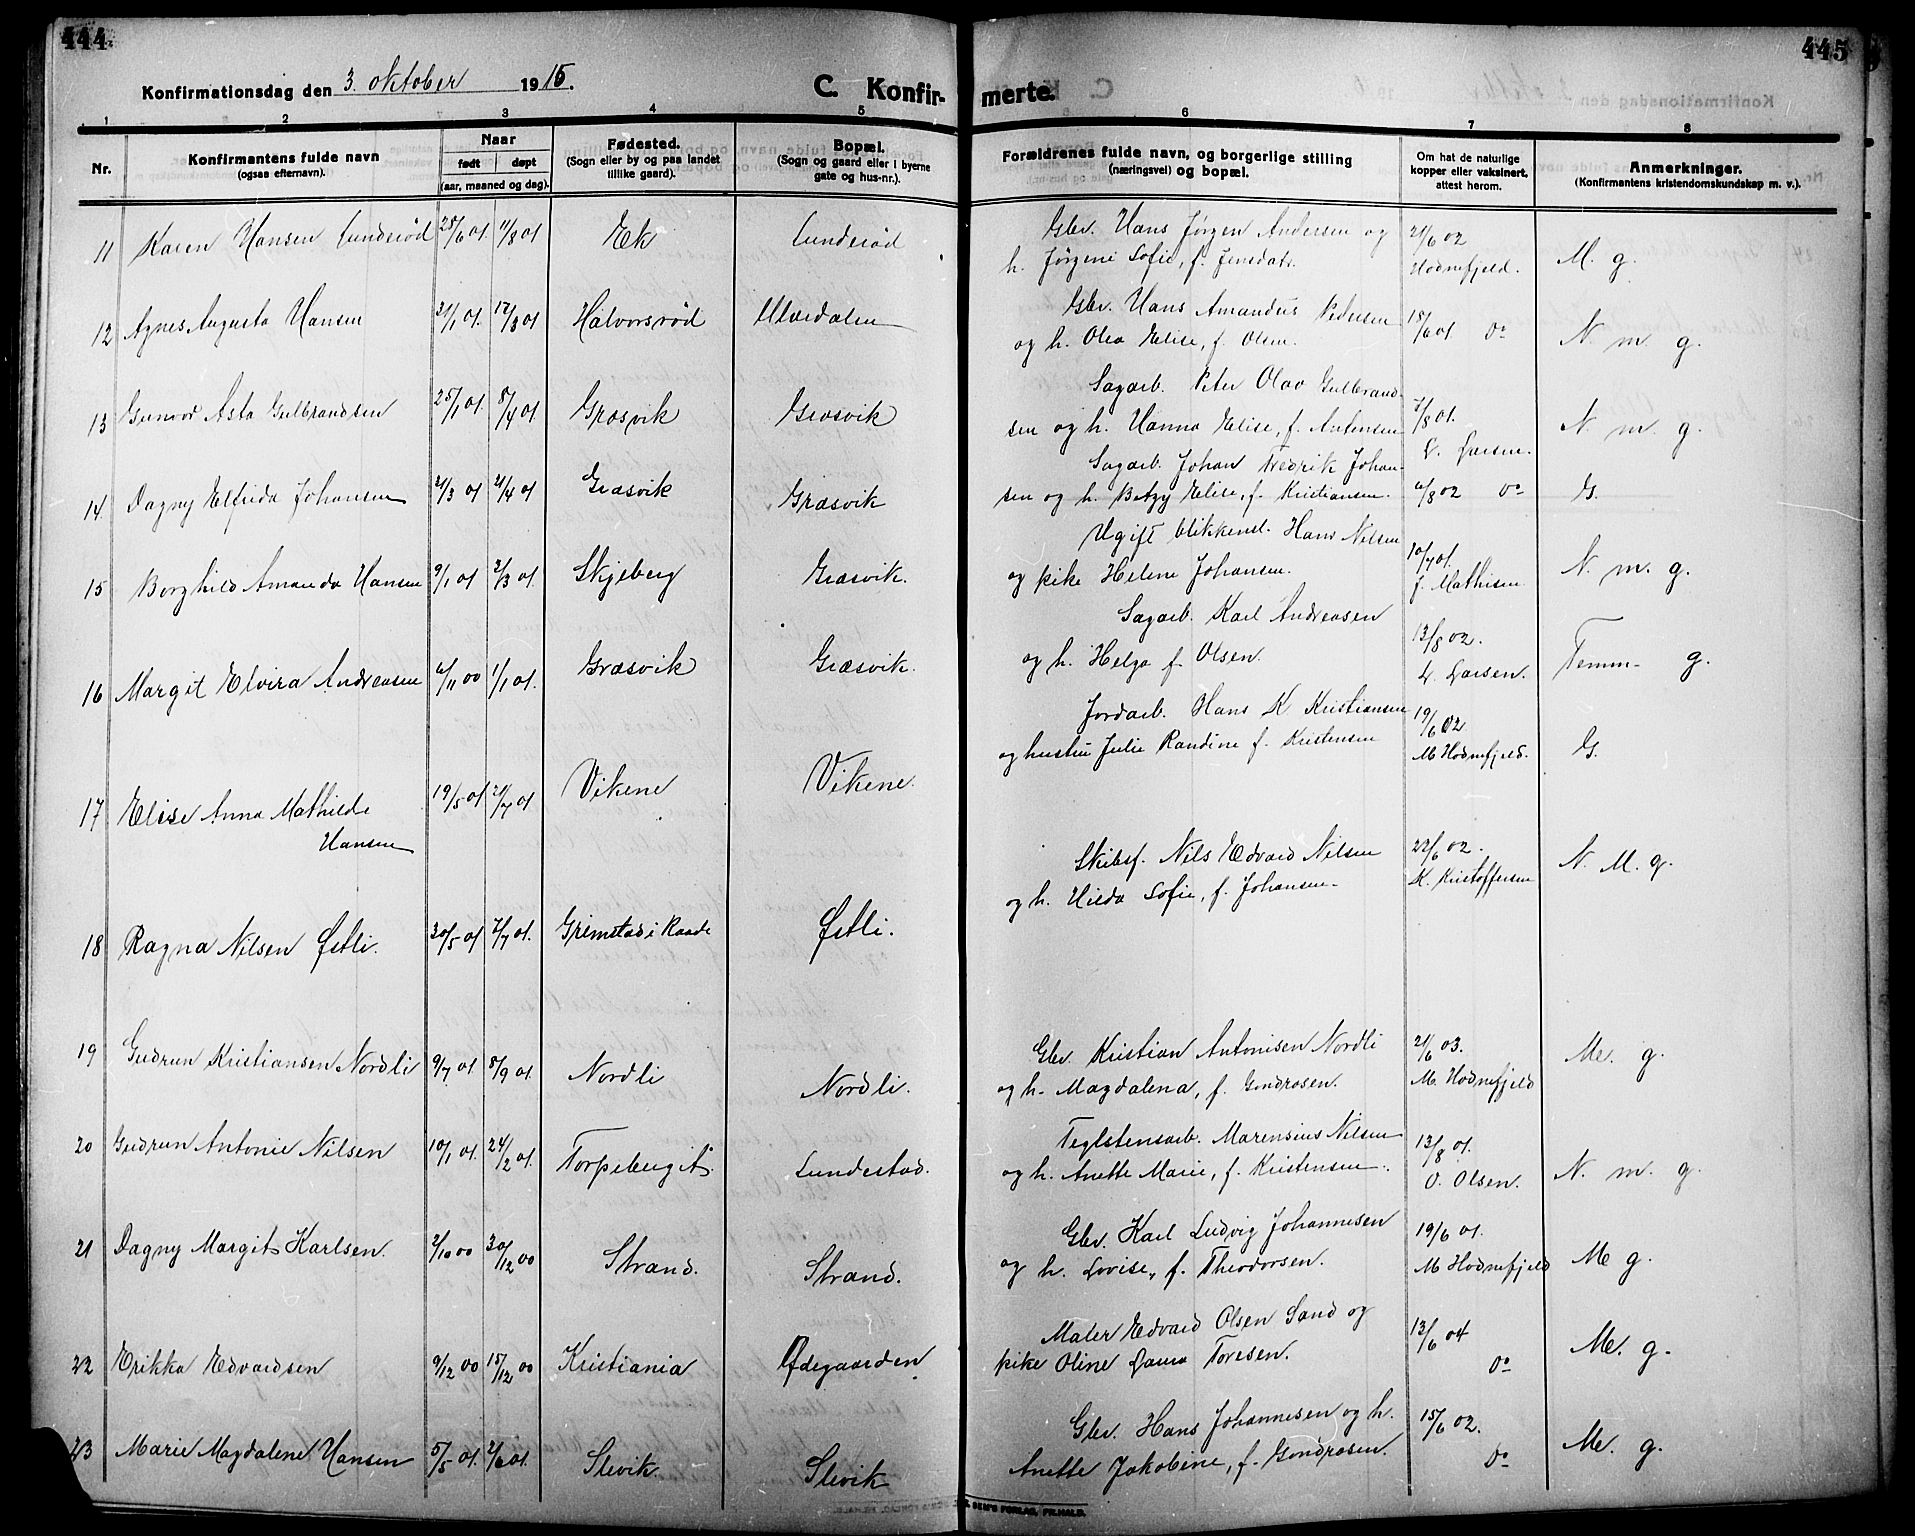 444
445
Konfirmationsdag den 3. oktober 1915.
C. Konfirmerte.
1 2 3 4 5 6 7 8
Nr.
Konfirmantens fulde navn
(ogsaa efternavn).
Naar
født døpt
(aar, maaned og dag).
Fødested.
(Sogn eller by og paa landet
tillike gaard).
Bopæl.
(Sogn og gaard eller i byerne
gate og hus-nr.).
Forældrenes fulde navn, og borgerlige stilling
(næringsvei) og bopæl.
Om hat de naturlige
kopper eller vaksinert,
attest herom.
Anmerkninger.
(Konfirmantens kristendomskundskap m. v.).
11 Karen Hansen Lunderød 25/6 01. 11/8 01 Ek Lunderød
Gbr. Hans Jørgen Andersen og
h. Jørgine Sofie, f. Jensdatr.
21/6 02
Hodnefjeld.
M. g.
12 Agnes Augusta Hansen 31/1 01. 17/3 01 Halvorsrød Ulvedalen
Gbr. Hans Amandus Pedersen
og h. Olea Elise, f. Olsen.
18/6 01. Do
N. m. g.
13 Gunvor Asta Gulbrandsen 25/1 01. 8/4 01 Græsvik Græsvik
Sagarb. Peter Olav Gulbrand-
sen og h. Hanna Elise, f. Antonsen
7/8 01.
L. Larsen.
N. m. g.
14. Dagny Elfrida Johansen 21/4 01 Græsvik Græsvik
Sagarb. Johan Fredrik Johan-
sen og h. Betzy Elise, f. Kristiansen.
6/8 02 Do
G.
15 Borghild Amanda Hansen 9/1 01 3/3 01. Skjeberg Græsvik.
Ugift blikkensl. Hans Nilsen
og pike Helene Johansen.
10/7 01.
f. Mathisen
N. m. g.
16 Margit Elvira Andreasen 6/11 00 1/1 01. Græsvik Græsvik.
Sagarb. Karl Andreasen
og h. Helga f. Olsen.
13/8 02.
L. Larsen.
Temm. g.
17 Elise Anna Mathilde
Hansen
19/5 01 21/7 01 Vikene Vikene.
Jordarb. Hans K Kristiansen
og hustru Julie Randine f. Kristensen
19/6 02
M Hodnefjeld.
G.
18 Ragna Nilsen Østli. 30/5 01 7/7 01. Grimstad i Raade Østli.
Skibsf. Nils Edvard Nilsen
og h. Hilda Sofie, f. Johansen.
22/6 02.
K. Kristoffersen
N. M. g.
19 Gudrun Kristiansen Nordli 9/7 01. 8/9 01. Nordli Nordli.
Gbr. Kristian Antonisen Nordli
og h. Magdalena, f. Gundrosen.
21/6 03.
M. Hodnefjeld
Me. g.
20 Gudrun Antonie Nilsen 10/1 01. 24/2 01. Torpebergit Lundestad.
Teglstensarb. Marensius Nilsen
og h. Anette Marie, f. Kristensen.
13/8 01.
O. Olsen.
N. m. g.
21 Dagny Margit Karlsen. 2/10 00 30/12 00 Strand. Strand.
Gbr. Karl Ludvig Johannesen
og h. Lovise, f. Theodorsen.
19/6 01.
M Hodnefjeld
Me g.
22 Erikka Edvardsen 9/12 00 15/12 00 Kristiania Ødegaarden.
Maler Edvard Olsen Sand og
pike Oline Laura Toresen.
13/6 04
Do
Me. g.
23 Marie Magdalene Hansen 5/5 01. 2/6 01. Slevik Slevik
Gbr. Hans Johannesen og h.
Anette Jakobine, f. Gondrosen.
15/6 02.
Do
Me. g.
SEM'S FORLAG, FR.HALD.